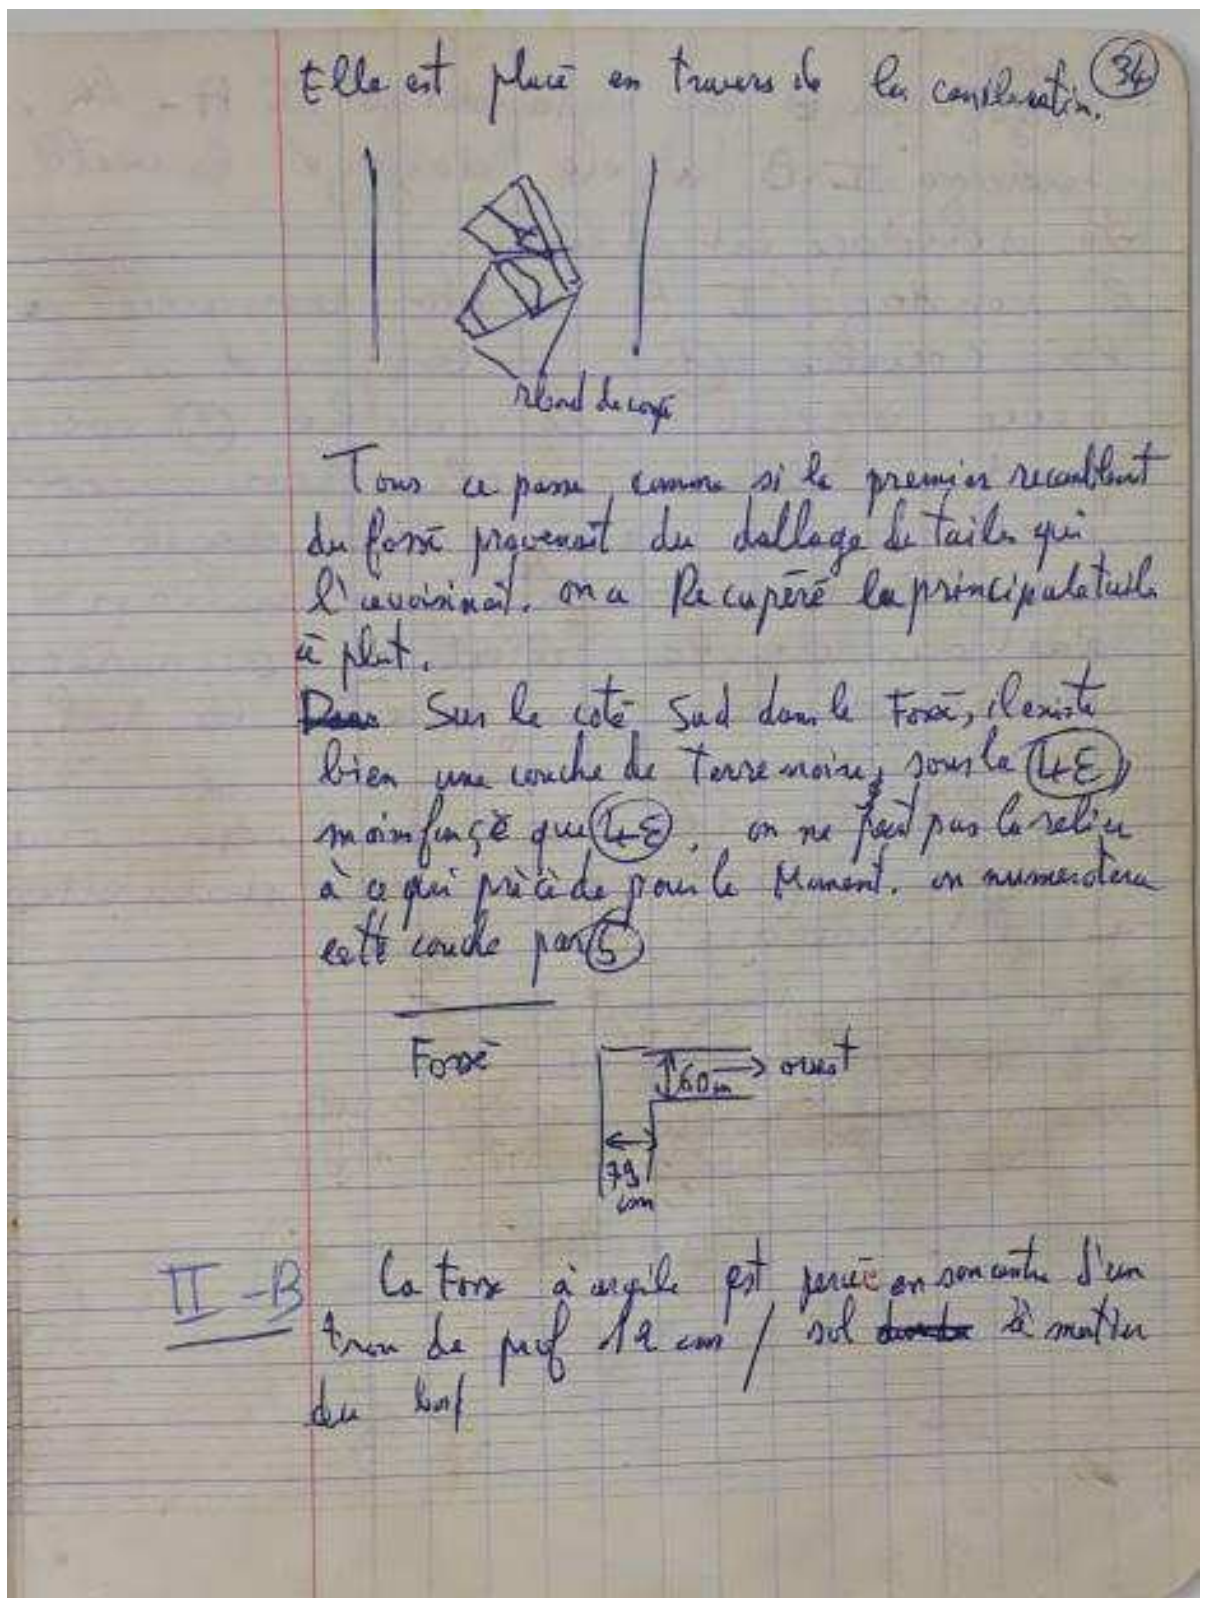 Elle est placé en travers de la canalisation. 34
rebord de
Tous ce passe comme si le premier recomblement
du fossé provenait du dallage de tuiles qui
l'avoisinait. on a Recupéré la principale tuile
à plat.
Sur le coté Sud dans le Fossé, il existe
bien une couche de Terre noire, sous la 4E,
moins foncé que 4E. on ne peut pas la relier
à ce qui précède pour le Moment. on numerotera
cette couche par 5
Fossé
ouest
60 cm
79
cm
II-B La fosse à argile est percée en son centre d'un
trou de prof 12 cm / sol
du